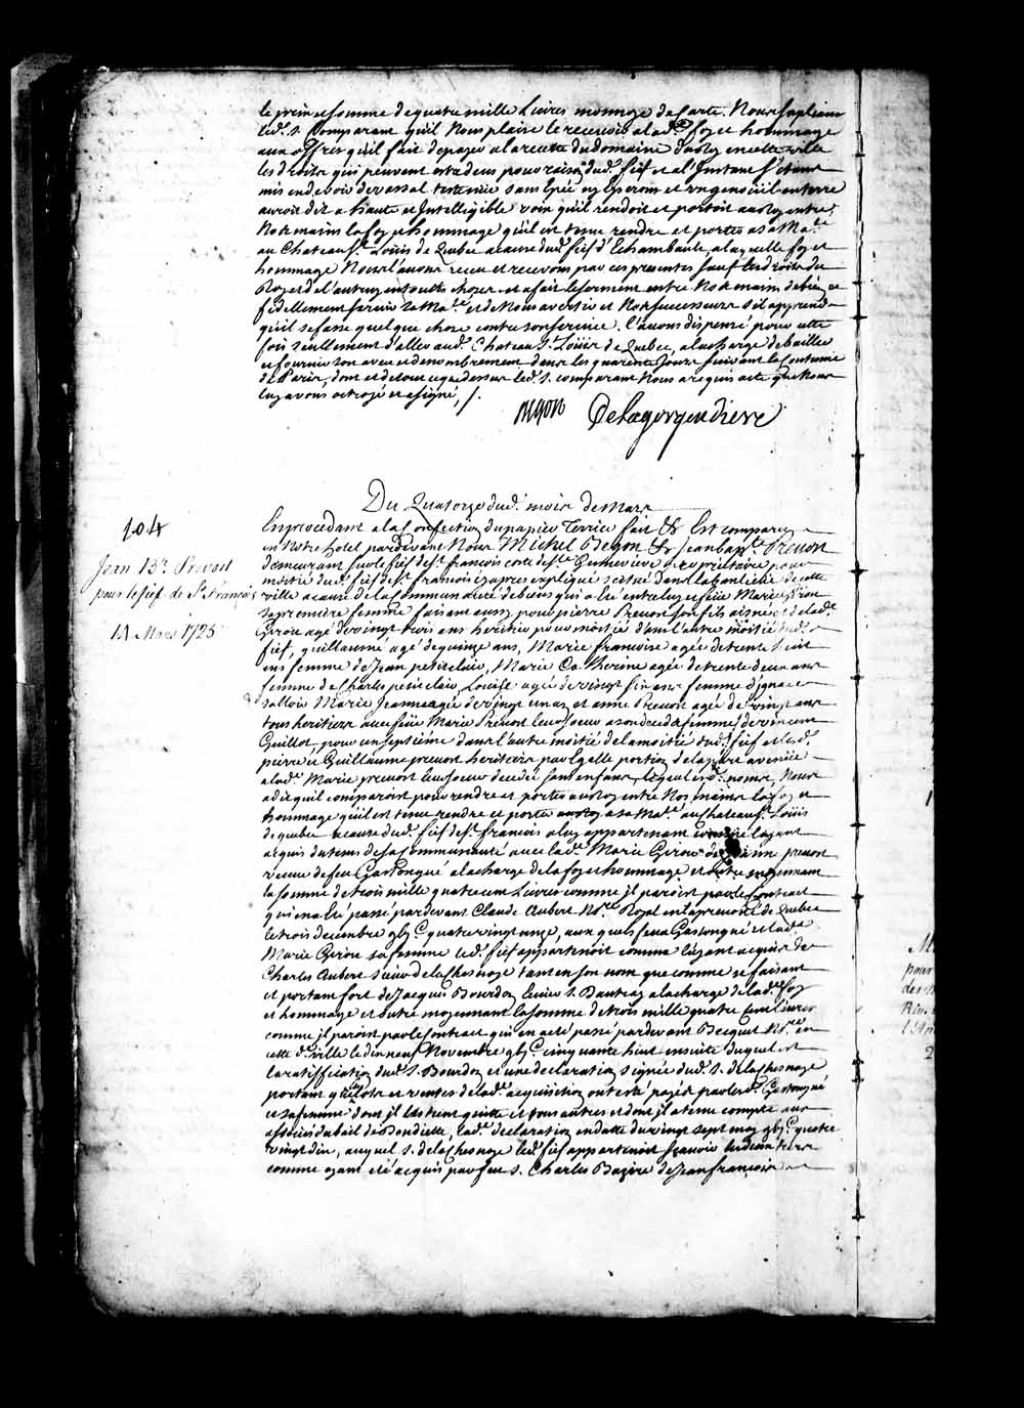 le prix et somme de quatre mille Livres monnoye de Carte. Nous supliant
led. s. Comparant qu'il Nous plaise le recevoir a lad.e foy et hommage
aux offres qu'il fait de payer a la recette du domaine du Roy en cette ville
les droits qui peuvent estre deus pour raison dud. fief et a l'Instant s'etant
mis en devoir de vassal teste nüe sans Epée ny Eperons et un genoüil en terre
auroit dit a haute et Intelligible voix qu'il rendoit et portoit au Roy entre
Nos mains la foy et hommage qu'il est tenu rendre et porter a sa Ma.té
au Chateau S.t Loüis de Quebec a cause dud. fief d'Echambault, a laquelle foy et
hommage Nous l'avons receu et recevons par ces presentes sauf les droits du
Roy et de l'autruy en toutte choses et a fait le serment entre Nos mains de bien et
fidellement servir sa Ma.té et de Nous avertir et Nos successeurs s'il apprend
qu'il se fasse quelque chose contre son service. l'avons dispensé pour cette
fois seullement d'aller aud. Chateau S.t Loüis de Quebec, a la charge de bailler
et fournir son aveu et denombrement dans les quarente jours suivant la Coutume
de Paris, dont et de tout ce que dessus led. s. comparant Nous a requis acte que Nous
luy avons octroyé et a signé, /.
Begon Delagorgendiere
Du Quatorze dud. mois de Mars
104
Jean B.te Prevost
pour le fief de S.t François
14 Mars 1725
En procedant a la Confection du papier Terrier fait &c Est comparu
en Notre hotel pardevant Nous Michel Begon &c Jean bap.te Prevost
demeurant sur le fief de S.t françois coste de S.te Genevieve proprietaire pour
moitié dud. fief de S.t françois cy apres expliqué scitué dans la banlieüe de cette
ville a cause de la Communauté de biens qui a été entre luy et feüe Marie Giron
sa premiere femme faisant aussy pour pierre Prevost son fils aisné et de lad.e
Giron agé de vingt trois ans heritier pour moitié dans l'autre moitié dud.
fief, guillaume agé de quinze ans, Marie francoise agée de trente huit
ans femme de Jean petitclair, Marie Catherine agée de trente deux ans
femme de Charles petitclair, Louise agée de vingt six ans femme d'Ignace
Salloir Marie Jeanne agée de vingt un an et anne Prevost agée de vingt ans
tous heritiers avec feüe Marie Prevost leur soeur a son deceds femme de vincent
Guillot, pour un septiéme dans l'autre moitié de la moitié dud. fief et lesd.
pierre et Guillaume prevost heritiers par Egalle portion de la part avenüe
a lad. Marie prevost leur soeur decedée sans enfans, lequel esd. noms, Nous
a dit qu'il comparoist pour rendre et porter au Roy entre Nos mains la foy et
hommage qu'il est tenu rendre et porter a sa Ma.té au Chateau S.t Loüis
de quebec a cause dud. fief de S.t francois a luy appartenant comme l'ayant
acquis du tems de sa Communauté avec lad. Marie Giron de anne prevost
veuve de feu Gastongué a la charge de la foy et hommage et outre moyennant
la somme de trois mille quatre cent Livres comme il paroist par le Contract
qui en a été passé pardevant Claude Aubert No.re Royal en la prevosté de Quebec
le trois decembre g b.c quatre vingt onze, auxquels feus Gastongué et lad.e
Marie Giron sa femme led. fief appartenoit comme l'ayant acquis de
Charles Aubert sieur de la Chesnaye tant en son nom que comme se faisant
et portant fort de Jacques Bourdon ecuier s. Dautray a la charge de lad.e foy
et hommage et outre moyennant la somme de trois mille quatre cent livres
comme il paroist par le Contract qui en a eté passé pardevant Becquet No.re en
cette d.e ville le dix neuf Novembre g b.c cinquante huit ensuitte duquel est
la ratiffication dud. s. Bourdon et une declaration signée dud. s. de la Chesnaye
portant que les lots et ventes de lad. acquisition ont esté payés par led. Gastongué
et sa femme dont il les tient quitte et tous autres et dont il a tenu compte aux
associés du bail de Dondiette, lad.e declaration en datte du vingt sept may g b.c quatre
vingt dix, auquel s. de la Chesnaye led. fief appartenoit sçavoir les deux tiers
comme ayant eté acquis par feu s. Charles Bazire de Jean francois